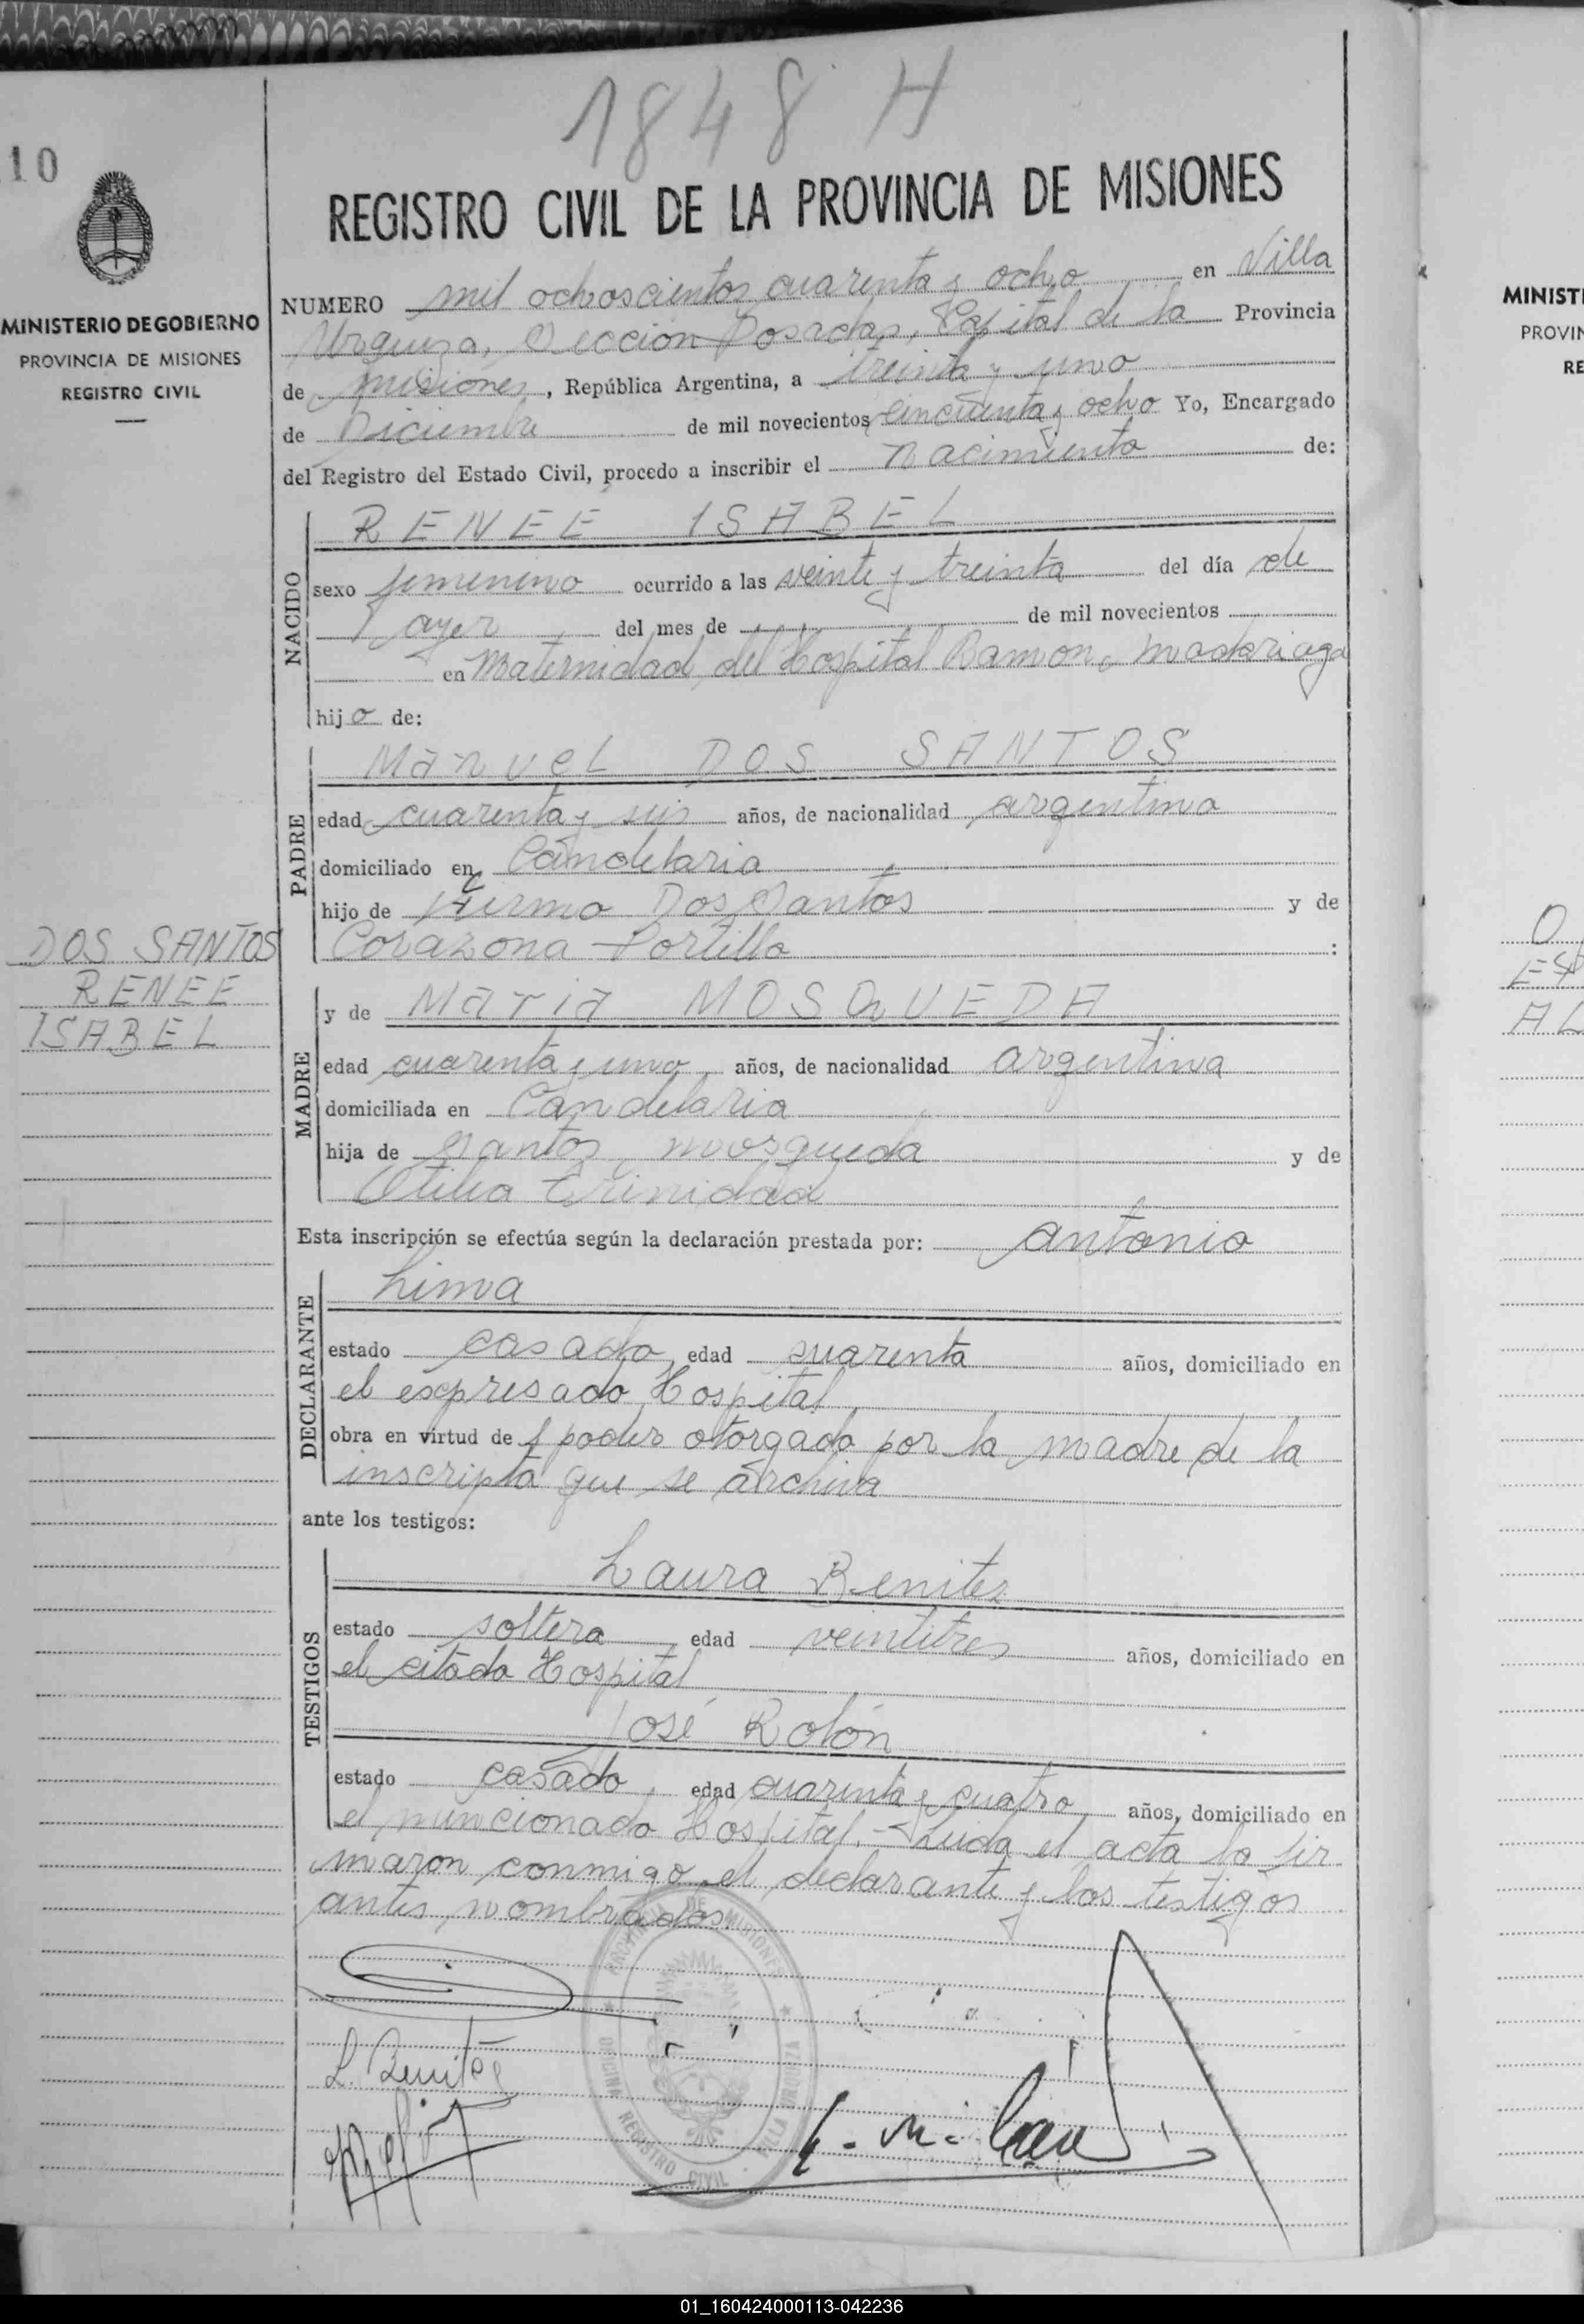 1848 H
10
REGISTRO CIVIL DE LA PROVINCIA DE MISIONES
MINISTERIO DE GOBIERNO
PROVINCIA DE MISIONES
REGISTRO CIVIL
NUMERO mil ochoscientos cuarenta y ocho en Villa
Urquiza, Sección Posadas, Capital de la Provincia
de Misiones, República Argentina, a treinta y uno
de Diciembre de mil novecientos cincuenta y ocho Yo, Encargado
del Registro del Estado Civil, procedo a inscribir el nacimiento de:
NACIDO
RENEE ISABEL
sexo femenino ocurrido a las veinte y treinta del día de
ayer del mes de de mil novecientos
en Maternidad del Hospital Ramon Madariaga
hijo de:
PADRE
Manuel DOS SANTOS
edad cuarenta y seis años, de nacionalidad argentino
domiciliado en Candelaria
hijo de Firmo Dos Santos y de
Corazona Portillo :
DOS SANTOS
RENEE
ISABEL
MADRE
y de Maria MOSQUEDA
edad cuarenta y uno años, de nacionalidad argentina
domiciliada en Candelaria
hija de Santos Mosqueda y de
Otilia Trinidad
Esta inscripción se efectúa según la declaración prestada por: Antonio
DECLARANTE
Lima
estado casado, edad cuarenta años, domiciliado en
el expresado Hospital
obra en virtud de poder otorgado por la madre de la
inscripta que se archiva
ante los testigos:
TESTIGOS
Laura Benitez
estado soltera, edad veintitres años, domiciliado en
el citado Hospital
José Rolón
estado casado, edad cuarenta y cuatro, años, domiciliado en
el mencionado Hospital.- Leida el acta la fir
maron conmigo el declarante y los testigos
antes nombrados.
PROVINCIA DE MISIONES
OFICINA REGISTRO CIVIL · VILLA URQUIZA
L. Benitez
MINIST
PROVIN
RE
O
ES
AL
01_160424000113-042236